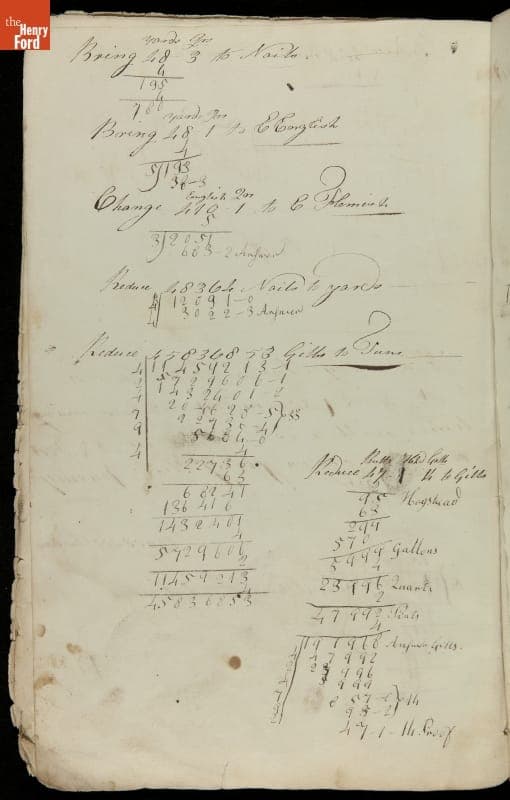 the
Henry
Ford
yards Qrs
Bring 48 3 to Nails
4
195
4
780
yards Qrs
Bring 48 1 to E English
4
5)193
38-3
English Qrs
Change 410 1 to E Flemish
5
3)2051
683-2 Answer
Reduce 48364 Nails to yards
4 12091-0
4 3022-3 Answer
Reduce 45836853 Gills to Tuns
4 11459213-1
2 5729606-1
4 1432401-2
7
9
4
4
22736
63
68241
136416
1432401
4
5729606
2
11459213
4
45836853
Butts Hhd Galls
Reduce 47-1 14 to Gills
95 Hogshead
63
299
570
5999 Gallons
4
23996 Quarts
2
47992 Pints
4
191968 Answer Gills.
47992
23996
5999
857-0
95-2
14
47-1-14 Proof